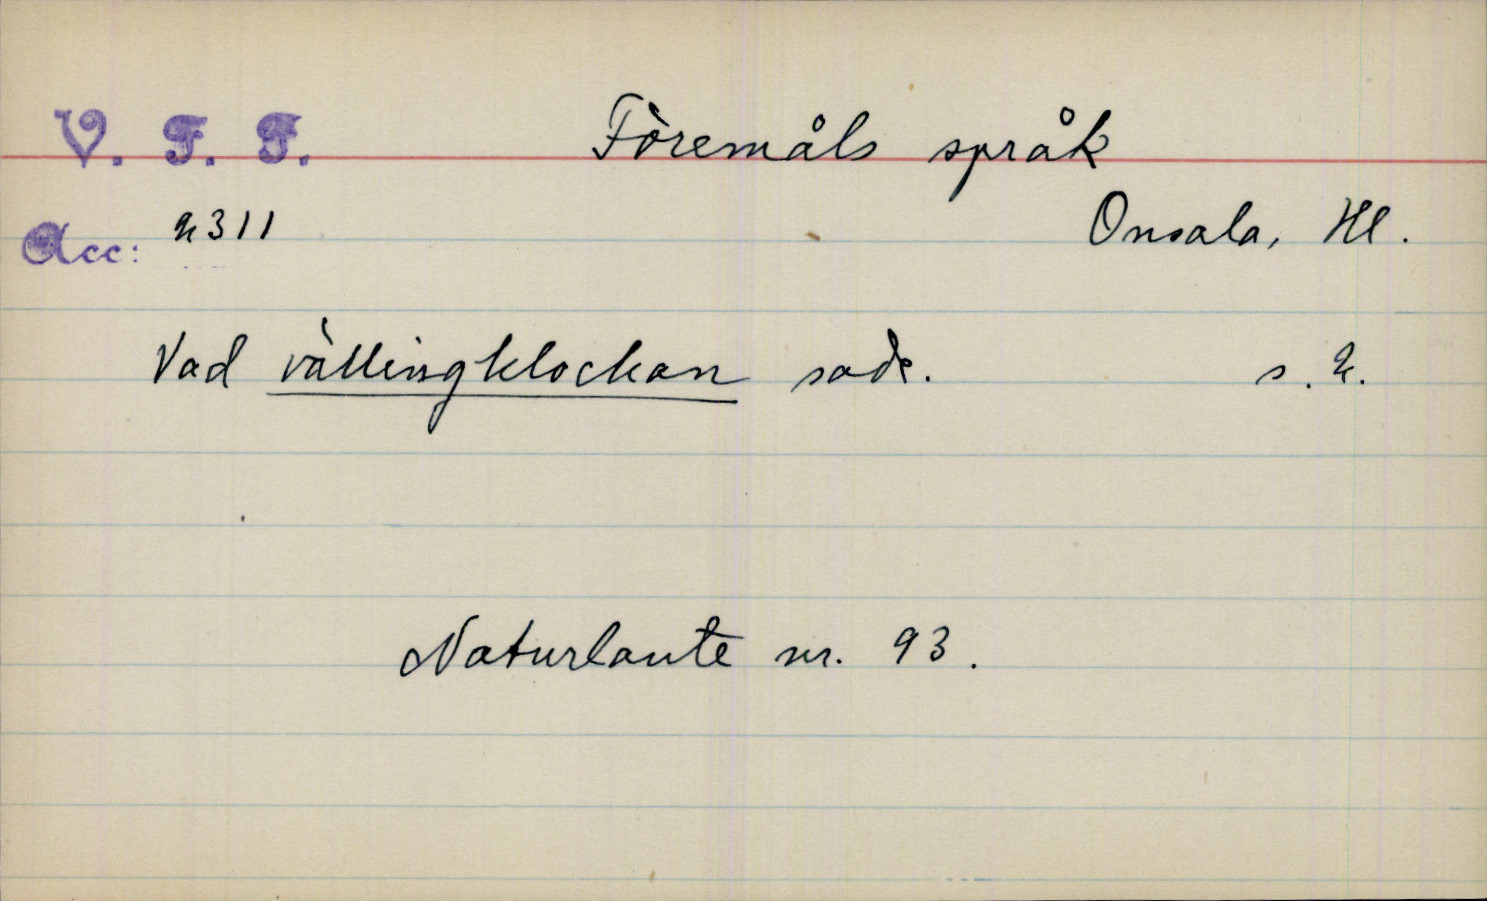 V. F. F. Föremåls språk
Acc: 2311 Onsala, Hl.
Vad vällingklockan sade. s. 2.
Naturlaute nr. 93.